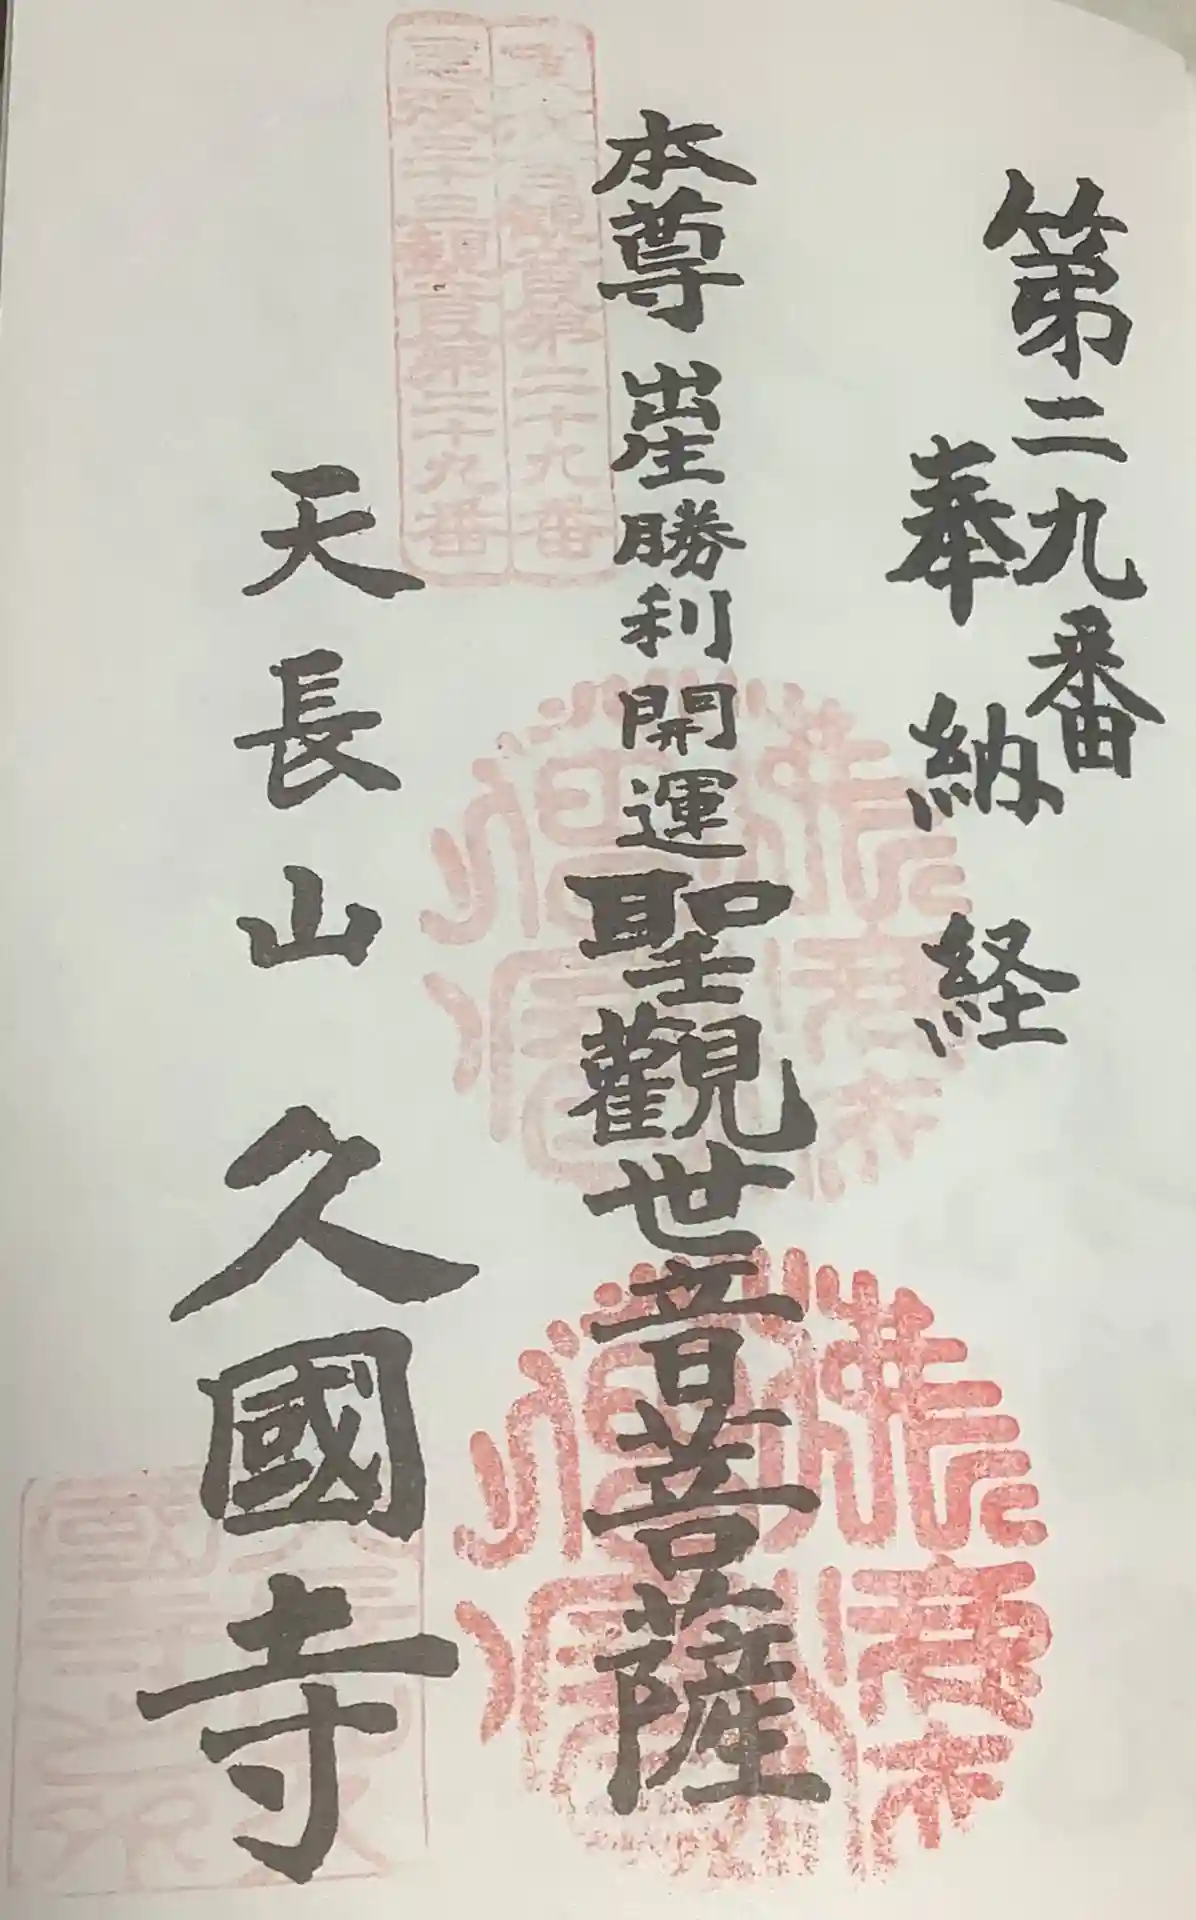 第二九番
奉納経
本尊 出生勝利開運聖觀世音菩薩
大成百観音第二十九番
尾張三十三観音第二十九番
天長山 久國寺